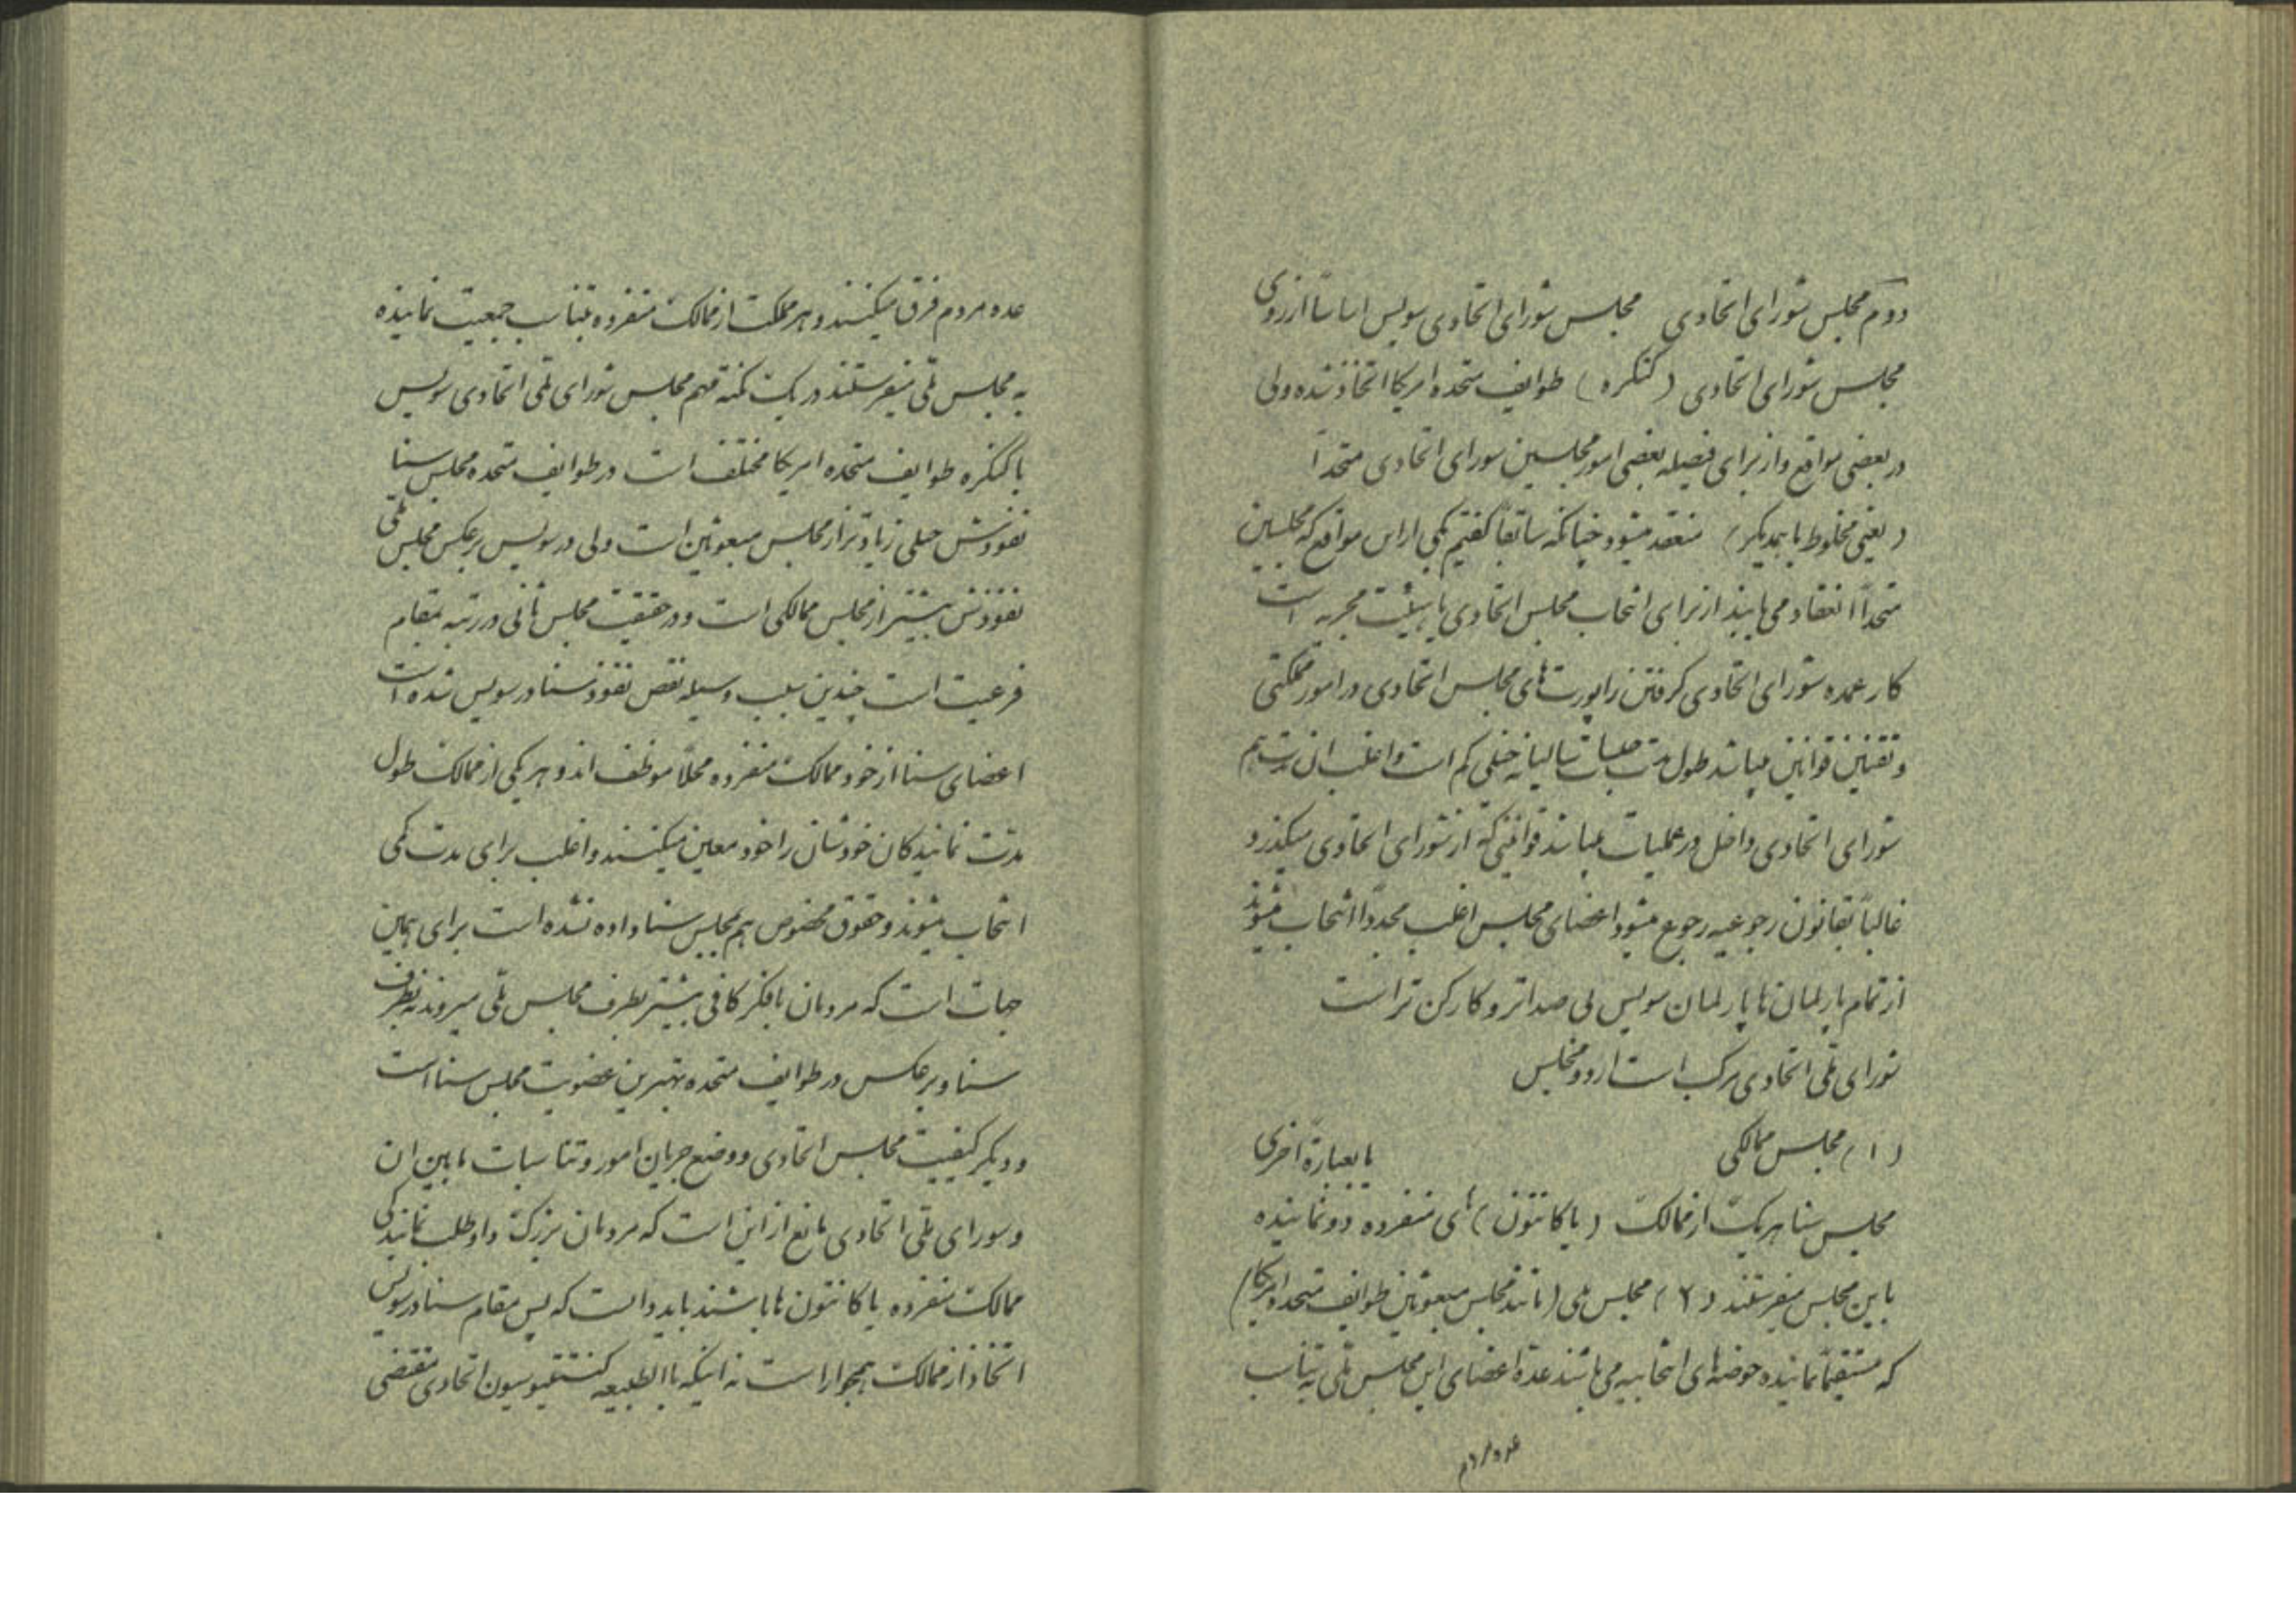 دوم مجلس شورای اتحادی مجلس شورای اتحادی سویس اساساً از روی
مجلس شورای اتحادی (کنگره) طوایف متحده امریکا اتخاذ شده ولی
در بعضی مواقع و از برای فیصله بعضی امور مجلسین شورای اتحادی متحداً
(یعنی مخلوط با یکدیگر) منعقد میشود چنانکه سابقاً گفتیم یکی از این مواقع که مجلسین
متحداً انعقاد می یابند از برای انتخاب مجلس اتحادی یا هیئت مجریه است
کار عمده شورای اتحادی گرفتن راپورت های مجلس اتحادی در امور مملکتی
و تقنین قوانین میباشد طول مدت جلسات سالیانه خیلی کم است و اغلب آن
شورای اتحادی داخل در عملیات میباشد قوانینی که از شورای اتحادی میگذرد
غالباً بقانون رجوعیه رجوع میشود اعضای مجلس اغلب مجدداً انتخاب میشوند
از تمام پارلمان ها پارلمان سویس بی صداتر و کارکن تر است
شورای ملی اتحادی مرکب است از دو مجلس
(۱) مجلس ممالکی یا بعبارة اخری
مجلس سنا هر یک از ممالک (یا کانتون) های منفرده دو نماینده
باین مجلس میفرستند (۲) مجلس ملی (مانند مجلس مبعوثین طوایف متحده امریکا)
که مستقیماً نماینده حوضه های انتخابیه می باشند عدة اعضای این مجلس ملی به تناسب
عده مردم فرق میکنند و هر مملکت از ممالک منفرده بتناسب جمعیت نماینده
به مجلس ملی میفرستند در یک نکته مهم مجلس شورای ملی اتحادی سویس
با کنگره طوایف متحده امریکا مختلف است در طوایف متحده مجلس سنا
نفوذش خیلی زیادتر از مجلس مبعوثین است ولی در سویس برعکس مجلس ملی
نفوذش بیشتر از مجلس ممالکی است و در حقیقت مجلس ثانی در رتبه بمقام
فرعیت است چندین سبب وسیله نقص نفوذ سنا در سویس شده است
اعضای سنا از خود ممالک منفرده محلاً موظف اند و هر یکی از ممالک طول
مدت نمایندگان خودشان را خود معین میکنند و اغلب برای مدت کمی
انتخاب میشوند و حقوق مخصوص هم بمجلس سنا داده نشده است برای همین
جهات است که مردمان با فکر کافی بیشتر بطرف مجلس ملی میروند نه بطرف
سنا و برعکس در طوایف متحده بهترین عضویت مجلس سنا است
و دیگر کیفیت مجلس اتحادی و وضع جریان امور و تناسبات مابین ان
و شورای ملی اتحادی مانع از این است که مردمان بزرگ داوطلب نمایندگی
ممالک منفرده یا کانتون ها باشند باید دانست که پس مقام سنا در سویس
اتخاذ از ممالک همجوار است نه اینکه بالطبیعه کنستتیوسیون اتحادی مقتضی